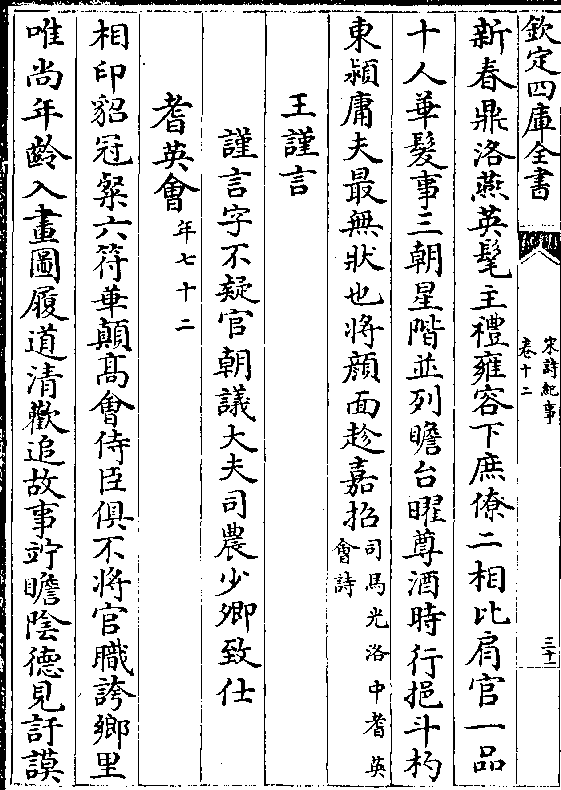 欽定四庫全書
宋詩紀事
卷十二
三十一
新春鼎洛燕英髦主禮雍容下庶僚二相比肩官一品
十人華髮事三朝星階並列瞻台曜尊酒時行挹斗杓
東潁庸夫最無狀也將顔面趁嘉招司馬光洛中耆英
會詩
王謹言
謹言字不疑官朝議大夫司農少卿致仕
耆英會年七十二
相印貂冠粲六符華顛髙會侍臣俱不將官職誇鄉里
唯尚年齡入畫圖履道清歡追故事竚瞻陰德見訏謨